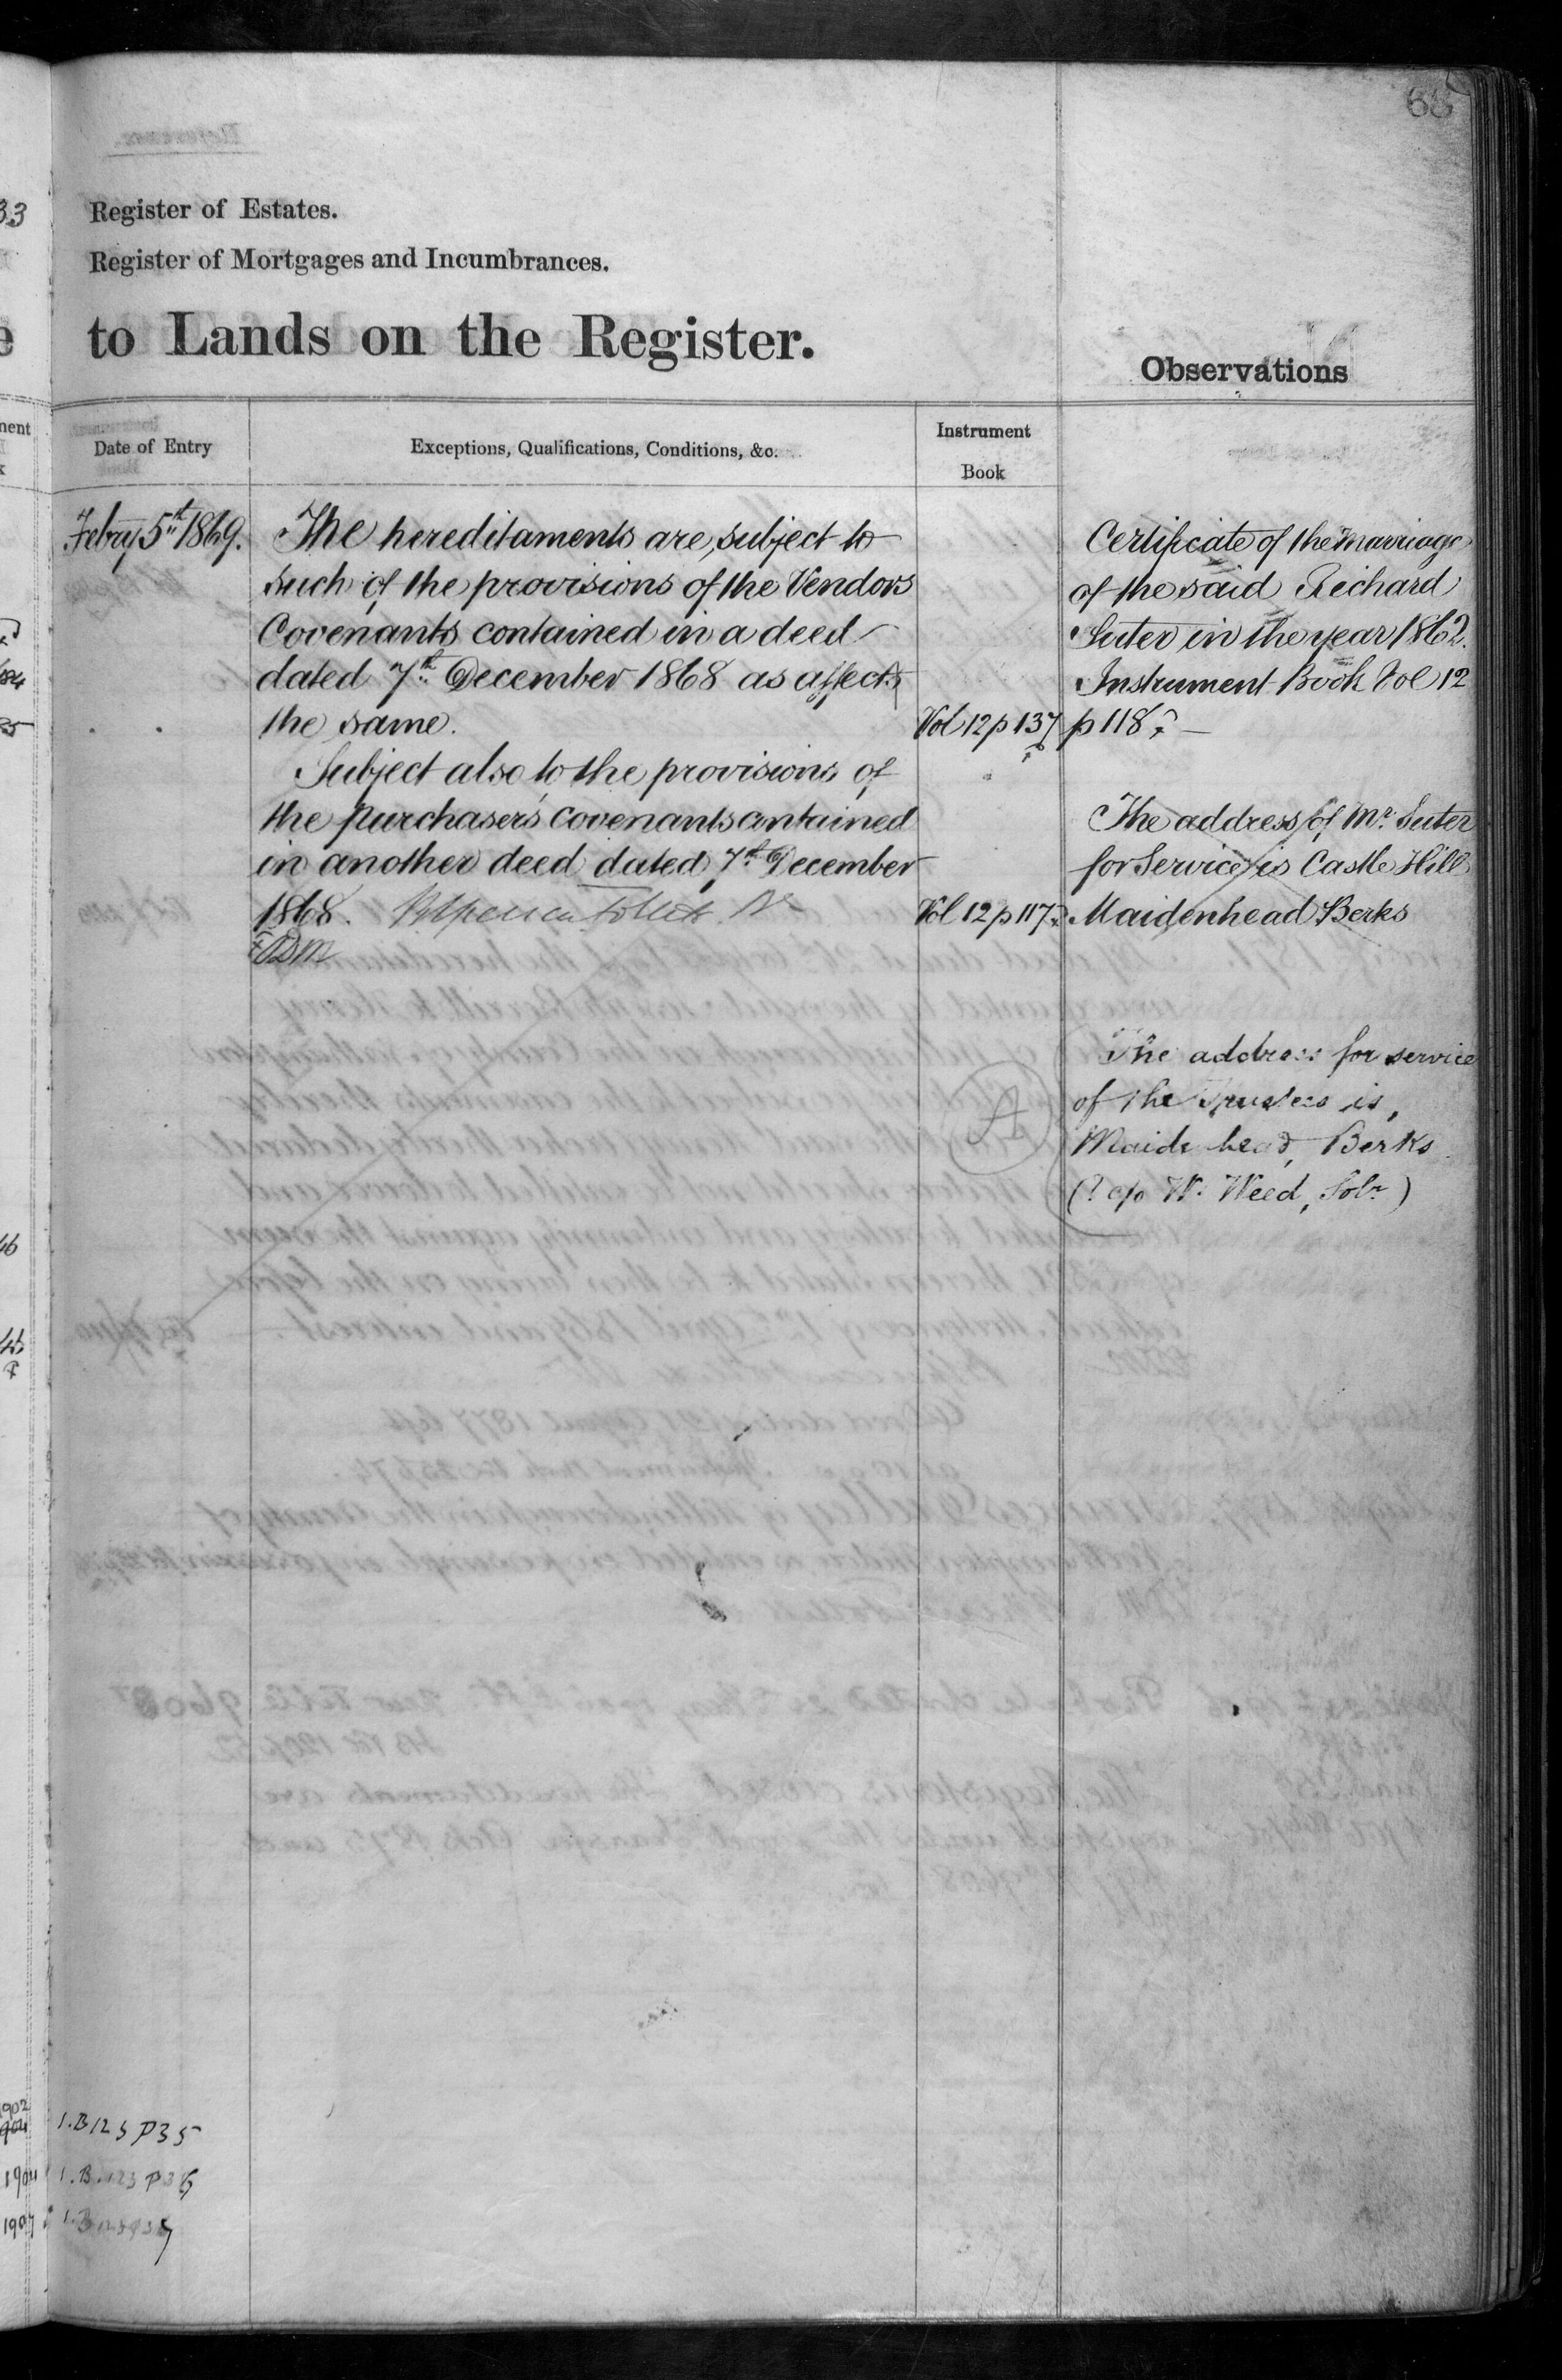 68
Register of Estates.
Register of Mortgages and Incumbrances.
to Lands on the Register.
Observations
Date of Entry
Exceptions, Qualifications, Conditions, &c.
Instrument
Book
Febry 5th 1869.
The hereditaments are subject to
such of the provisions of the Vendors
Covenants contained in a deed
dated 7th December 1868 as affects
the same.
Vol 12 p 137
Subject also to the provisions of
the purchaser's covenants contained
in another deed dated 7th December
1868.
Vol 12 p 117
EDM
Certificate of the marriage
of the said Richard
Suter in the year 1862.
Instrument Book Vol 12
p 118
The address of Mr. Suter
for Service is Castle Hill
Maidenhead Berks
A
The address for service
of the Trustees is,
Maidenhead, Berks
(? c/o W. Weed, Solr)
I.B 123 P35
I.B. 123 P36